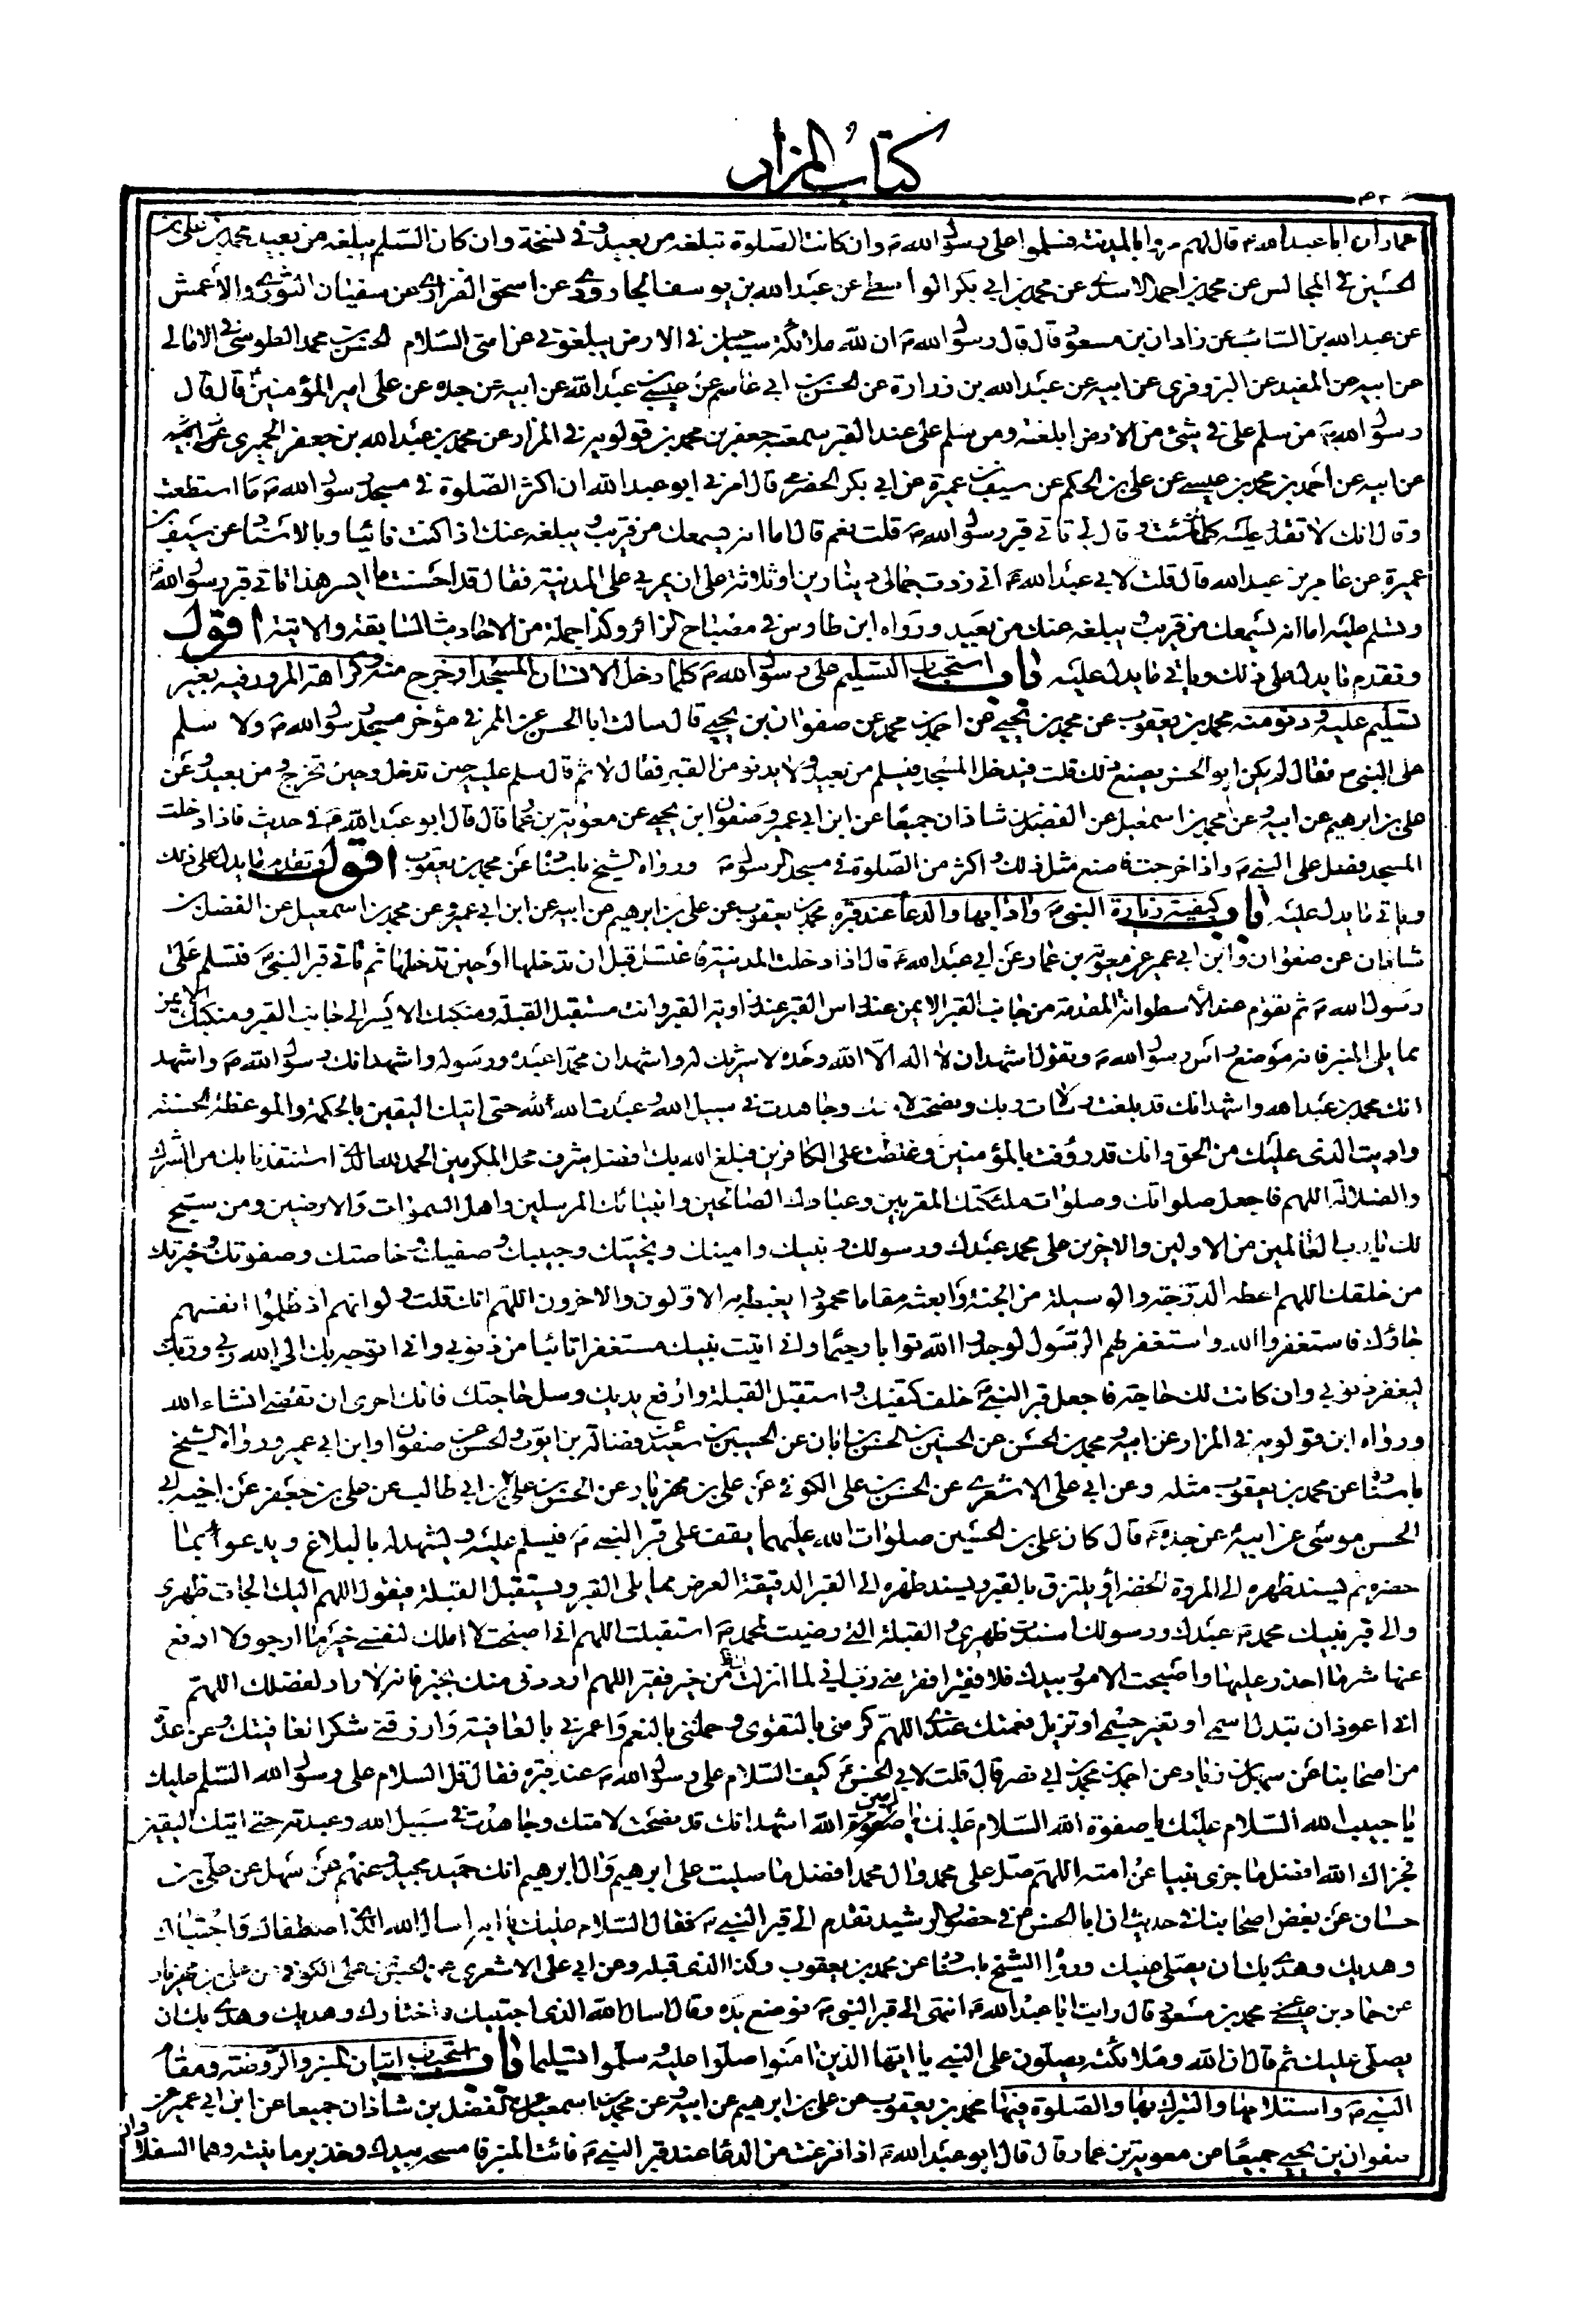 كتاب المزار
عمار ان ابا عبد الله ع قال لهم مروا بالمدينة فسلموا على رسول الله ص وان كانت الصلوة تبلغه من بعيد وفى نسخة وان كان السّلم يبلغه من بعيد محمد بن على بن
الحسين فى المجالس عن محمد بن احمد الاسدى عن محمد بن ابى بكر الواسطى عن عبد الله بن يوسف الجارودى عن اسحق الفزارى عن سفيان الثورى والأعمش
عن عبد الله بن السّائب عن زادان بن مسعود قال قال رسول الله ص ان لله ملائكة سياحين فى الارض يبلغونى عن امتى السّلام الحسن بن محمد الطوسى فى الامالى
عن ابيه عن المفيد عن البزوفرى عن ابيه عن عبد الله بن زرارة عن الحسن بن ابى عاصم عن عيسى بن عبد الله عن ابيه عن جده عن على امير المؤمنين ع قال قال
رسول الله ص من سلم على فى شئ من الأرض ابلغته ومن سلم على عند القبر سمعته جعفر بن محمد بن قولويه فى المزار عن محمد بن عبد الله بن جعفر الحميرى عن ابيه
عن ابيه عن أحمد بن محمد بن عيسى عن على بن الحكم عن سيف بن عميرة عن ابى بكر الحضرمى قال امرنى ابو عبد الله ان اكثر الصّلوة فى مسجد رسول الله ص ما استطعت
وقال انك لا تقدر عليه كلما شئت وقال لى تاتى قبر رسول الله ص قلت نعم قال اما انه يسمعك من قريب ويبلغه عنك اذا كنت نائيا وبالاسناد عن سيف بن
عميرة عن عامر بن عبد الله قال قلت لابى عبد الله ع انى زدت جمالى دينارين او ثلاثة على ان يمر بى على المدينة فقال قد احسنت ما ايسر هذا تاتى قبر رسول الله ص
وتسلم عليه اما انه يسمعك من قريب ويبلغه عنك من بعيد ورواه ابن طاوس فى مصباح الزائر وكذا جملة من الاحاديث السّابقة والآتية اقول
وتقدم ما يدل على ذلك وياتى ما يدل عليه باب استحباب التسليم على رسول الله ص كلما دخل الانسان المسجد او خرج منه وكراهة المرور فيه بغير
تسليم عليه ودنو منه محمد بن يعقوب عن محمد بن يحيى عن احمد بن محمد عن صفوان بن يحيى قال سالت ابا الحسن ع عن الممر فى مؤخر مسجد رسول الله ص ولا سلم
على النبى ص فقال لم يكن ابو الحسن يصنع ذلك قلت فيدخل المسجد فيسلم من بعيد ولا يدنو من القبر فقال لا ثم قال سلم عليه حين تدخل وحين تخرج ومن بعيد وعن
على بن ابرهيم عن ابيه وعن محمد بن اسمعيل عن الفضل بن شاذان جميعًا عن ابن ابى عمير وصفوان ابن يحيى عن معوية بن عمار قال قال ابو عبد الله ع فى حديث فاذا دخلت
المسجد فصل على النبى ص واذا خرجت فاصنع مثل ذلك واكثر من الصّلوة فى مسجد الرسول ص ورواه الشيخ باسناده عن محمد بن يعقوب اقول وتقدم ما يدل على ذلك
وياتى ما يدل عليه باب كيفية زيارة النبى ص وآدابها والدعاء عند قبره محمد بن يعقوب عن على بن ابرهيم عن ابيه عن ابن ابى عمير وعن محمد بن اسمعيل عن الفضل بن
شاذان عن صفوان وابن ابى عمير عن معوية بن عمار عن ابى عبد الله ع قال اذا دخلت المدينة فاغتسل قبل ان تدخلها او حين تدخلها ثم تاتى قبر النبى ص فتسلم على
رسول الله ص ثم تقوم عند الأسطوانة المقدمة من جانب القبر الايمن عند راس القبر عند زاوية القبر وانت مستقبل القبلة ومنكبك الايسر الى جانب القبر ومنكبك الايمن
مما يلى المنبر فانه موضع راس رسول الله ص وتقول اشهد ان لا اله الّا الله وحده لا شريك له واشهد ان محمّدا عبده ورسوله واشهد انك رسول الله ص واشهد
انك محمد بن عبد الله واشهد انك قد بلغت رسالات ربك ونصحت لامتك وجاهدت فى سبيل الله وعبدت الله حتى اتيك اليقين بالحكمة والموعظة الحسنة
واديت الذى عليك من الحق وانك قد رؤفت بالمؤمنين وغلظت على الكافرين فبلغ الله بك افضل شرف محل المكرمين الحمد لله الذى استنقذنا بك من الشرك
والضلالة اللهم فاجعل صلواتك وصلوات ملئكتك المقربين وعبادك الصالحين وانبيائك المرسلين واهل السموات والارضين ومن سبح
لك يا رب العالمين من الاولين والاخرين على محمد عبدك ورسولك ونبيك وامينك ونجيّك وحبيبك وصفيك وخاصتك وصفوتك وخيرتك
من خلقك اللهم اعطه الدرجة والوسيلة من الجنة وابعثه مقاما محمودا يغبطه به الاوّلون والاخرون اللهم انك قلت ولو انهم اذ ظلموا انفسهم
جاؤك فاستغفروا الله واستغفر لهم الرّسول لوجدوا الله توابا رحيمًا وانى اتيت نبيك مستغفرا تائبا من ذنوبى وانى اتوجه بك الى الله ربى وربك
ليغفر ذنوبى وان كانت لك حاجة فاجعل قبر النبى ص خلف كتفيك واستقبل القبلة وارفع يديك وسل حاجتك فانك احرى ان تقضى انشاء الله
ورواه ابن قولويه فى المزار عن ابيه ومحمد بن الحسن عن الحسين بن الحسن بن ابان عن الحسين بن سعيد عن فضالة بن ايوب والحسن عن صفوان وابن ابى عمير ورواه الشيخ
باسناده عن محمد بن يعقوب مثله وعن ابى على الاشعرى عن الحسن بن على الكوفى عن على بن مهزيار عن الحسن بن على بن ابى طالب عن على بن جعفر عن اخيه ابى
الحسن موسى عن ابيه عن جده ع قال كان على بن الحسين صلوات الله عليهما يقف على قبر النبى ص فيسلم عليه ويشهد له بالبلاغ ويدعوا بما
حضره ثم يسند ظهره الى المروة الخضراء ويلتزق بالقبر ويسند ظهره الى القبر الدقيقة العرض مما يلى القبر ويستقبل القبلة فيقول اللهم اليك الجات ظهرى
والى قبر نبيك محمد ص عبدك ورسولك اسندت ظهرى والقبلة التى رضيت لمحمد ص استقبلت اللهم انى اصبحت لا املك لنفسى خير ما ارجو ولا ادفع
عنها شر ما احذر عليها واصبحت الامور بيدك فلا فقير افقر منى رب انى لما انزلت الى من خير فقير اللهم ارددنى منك بخير فانه لا راد لفضلك اللهم
انى اعوذ ان تبدل اسمى او تغير جسمى او تزيل نعمتك عندى اللهم كرمنى بالتقوى وجملنى بالنعم واعمرنى بالعافية وارزقنى شكر العافيتك وعن عدّة
من اصحابنا عن سهل بن زياد عن احمد بن محمد بن ابى نصر قال قلت لابى الحسن ع كيف السّلام على رسول الله ص عند قبره فقال قل السلام على رسول الله السّلم عليك
يا حبيب الله السّلام عليك يا صفوة الله السّلام عليك يا امين الله اشهد انك قد نصحت لامتك وجاهدت فى سبيل الله وعبدته حتى اتيك اليقين
فجزاك الله افضل ما جزى نبيا عن امته اللهم صّل على محمد وال محمد افضل ما صليت على ابرهيم وال ابرهيم انك حميد مجيد وعنهم عن سهل عن على بن
حسان عن بعض اصحابنا فى حديث ان ابا الحسن ع فى حضور الرشيد تقدم الى قبر النبى ص فقال السّلام عليك يا ابه اسال الله الذى اصطفاك واجتباك
وهديك وهدى بك ان يصلى عليك ورواه الشيخ باسناده عن محمد بن يعقوب وكذا الذى قبله وعن ابى على الاشعرى عن الحسن بن على الكوفى عن على بن مهزيار
عن حماد بن عيسى عن محمد بن مسعود قال رايت ابا عبد الله ع انتهى الى قبر النبى ص فوضع يده وقال اسال الله الذى اجتبيك واختارك وهديك وهدى بك ان
يصلى عليك ثم قال ان الله وملائكته يصلون على النبى يا ايها الذين امنوا صلّوا عليه وسلّموا تسليما باب استحباب اتيان المنبر والروضة ومقام
النبى ص واستلامها والتبرك بها والصلوة فيها محمد بن يعقوب عن على بن ابرهيم عن ابيه وعن محمد بن اسمعيل عن الفضل بن شاذان جميعا عن ابن ابى عمير عن
صفوان بن يحيى جميعًا عن معوية بن عمار قال قال ابو عبد الله ع اذا فرغت من الدعاء عند قبر النبى ص فائت المنبر فامسحه بيدك وخذ برمانيته وهما السفلاوان